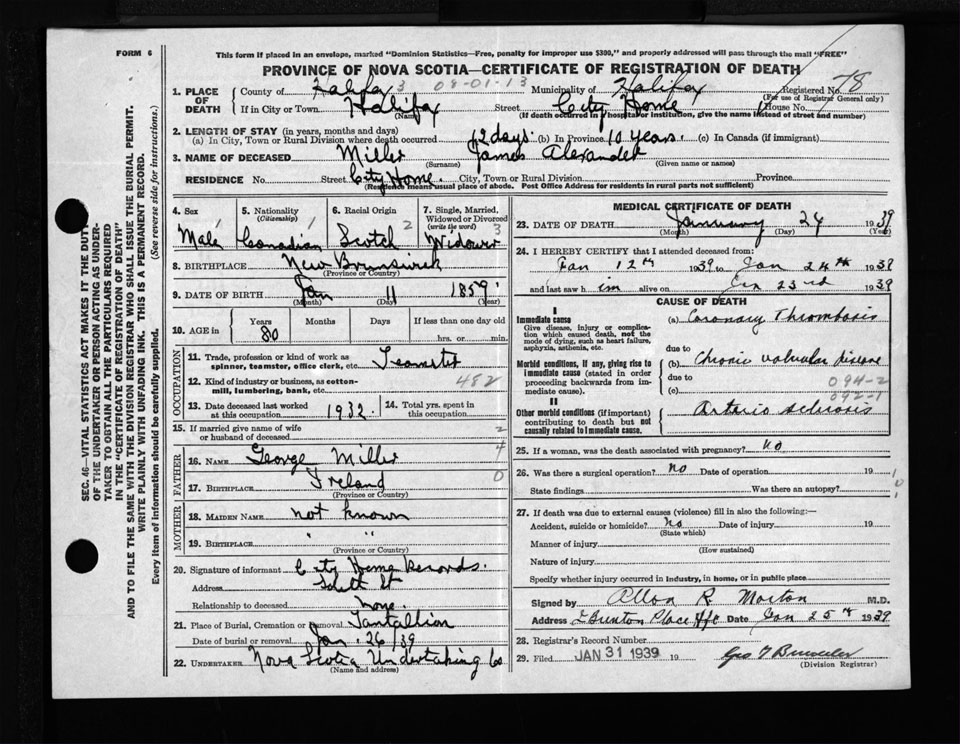 FORM 6
This form if placed in an envelope, marked "Dominion Statistics—Free, penalty for improper use $300," and properly addressed will pass through the mail "FREE"
PROVINCE OF NOVA SCOTIA—CERTIFICATE OF REGISTRATION OF DEATH
1. PLACE OF DEATH County of Halifax 3 08-01-13 Municipality of Halifax Registered No. 78
(For use of Registrar General only)
If in City or Town Halifax Street City Home House No.
(Name) (If death occurred in hospital or institution, give the name instead of street and number)
2. LENGTH OF STAY (in years, months and days)
(a) In City, Town or Rural Division where death occurred 12 days (b) In Province 10 years. (c) In Canada (if immigrant)
3. NAME OF DECEASED Miller James Alexander
(Surname) (Given name or names)
RESIDENCE No. Street City Home. City, Town or Rural Division Province
(Residence means usual place of abode. Post Office Address for residents in rural parts not sufficient)
4. Sex 5. Nationality (Citizenship) 6. Racial Origin 7. Single, Married, Widowed or Divorced (write the word)
1 1 2 3
Male Canadian Scotch Widower
8. BIRTHPLACE New Brunswick
(Province or Country)
9. DATE OF BIRTH Jan 11 1859
(Month) (Day) (Year)
10. AGE in Years Months Days If less than one day old
80 hrs. or min.
OCCUPATION
11. Trade, profession or kind of work as spinner, teamster, office clerk, etc. Teamster
12. Kind of industry or business, as cotton-mill, lumbering, bank, etc. 482
13. Date deceased last worked at this occupation 1932 14. Total yrs. spent in this occupation
15. If married give name of wife or husband of deceased 2
FATHER
16. NAME George Miller 4
17. BIRTHPLACE Ireland 0
(Province or Country)
MOTHER
18. MAIDEN NAME not known
19. BIRTHPLACE " "
(Province or Country)
20. Signature of informant City Home Records.
Address St
Relationship to deceased none.
21. Place of Burial, Cremation or removal Tantallion
Date of burial or removal Jan. 26/39
22. UNDERTAKER Nova Scotia Undertaking Co
(Name and address)
MEDICAL CERTIFICATE OF DEATH
23. DATE OF DEATH January 24 1939
(Month) (Day) (Year)
24. I HEREBY CERTIFY that I attended deceased from:
Jan 12th 1939 to Jan 24th 1939
and last saw him alive on Jan 23rd 1939
CAUSE OF DEATH
I
Immediate cause (a) Coronary Thrombosis
Give disease, injury or complication which caused death, not the mode of dying, such as heart failure, asphyxia, asthenia, etc.
due to
Morbid conditions, if any, giving rise to immediate cause (stated in order proceeding backwards from immediate cause). (b) Chronic valvular disease
due to 094-2
(c) 092-1
II
Other morbid conditions (if important) contributing to death but not causally related to immediate cause. Arterio sclerosis
25. If a woman, was the death associated with pregnancy? No
26. Was there a surgical operation? No Date of operation 19
State findings Was there an autopsy?
27. If death was due to external causes (violence) fill in also the following:—
Accident, suicide or homicide? No Date of injury 19
(State which)
Manner of injury
(How sustained)
Nature of injury
Specify whether injury occurred in industry, in home, or in public place
Signed by Allan R Morton M.D.
Address Brunton Place Hfx Date Jan 25th 1939
28. Registrar's Record Number
29. Filed JAN 31 1939 19
(Division Registrar)
SEC. 46—VITAL STATISTICS ACT MAKES IT THE DUTY
OF THE UNDERTAKER OR PERSON ACTING AS UNDER-
TAKER TO OBTAIN ALL THE PARTICULARS REQUIRED
IN THE "CERTIFICATE OF REGISTRATION OF DEATH"
AND TO FILE THE SAME WITH THE DIVISION REGISTRAR WHO SHALL ISSUE THE BURIAL PERMIT.
WRITE PLAINLY WITH UNFADING INK. THIS IS A PERMANENT RECORD.
Every item of information should be carefully supplied. (See reverse side for instructions.)